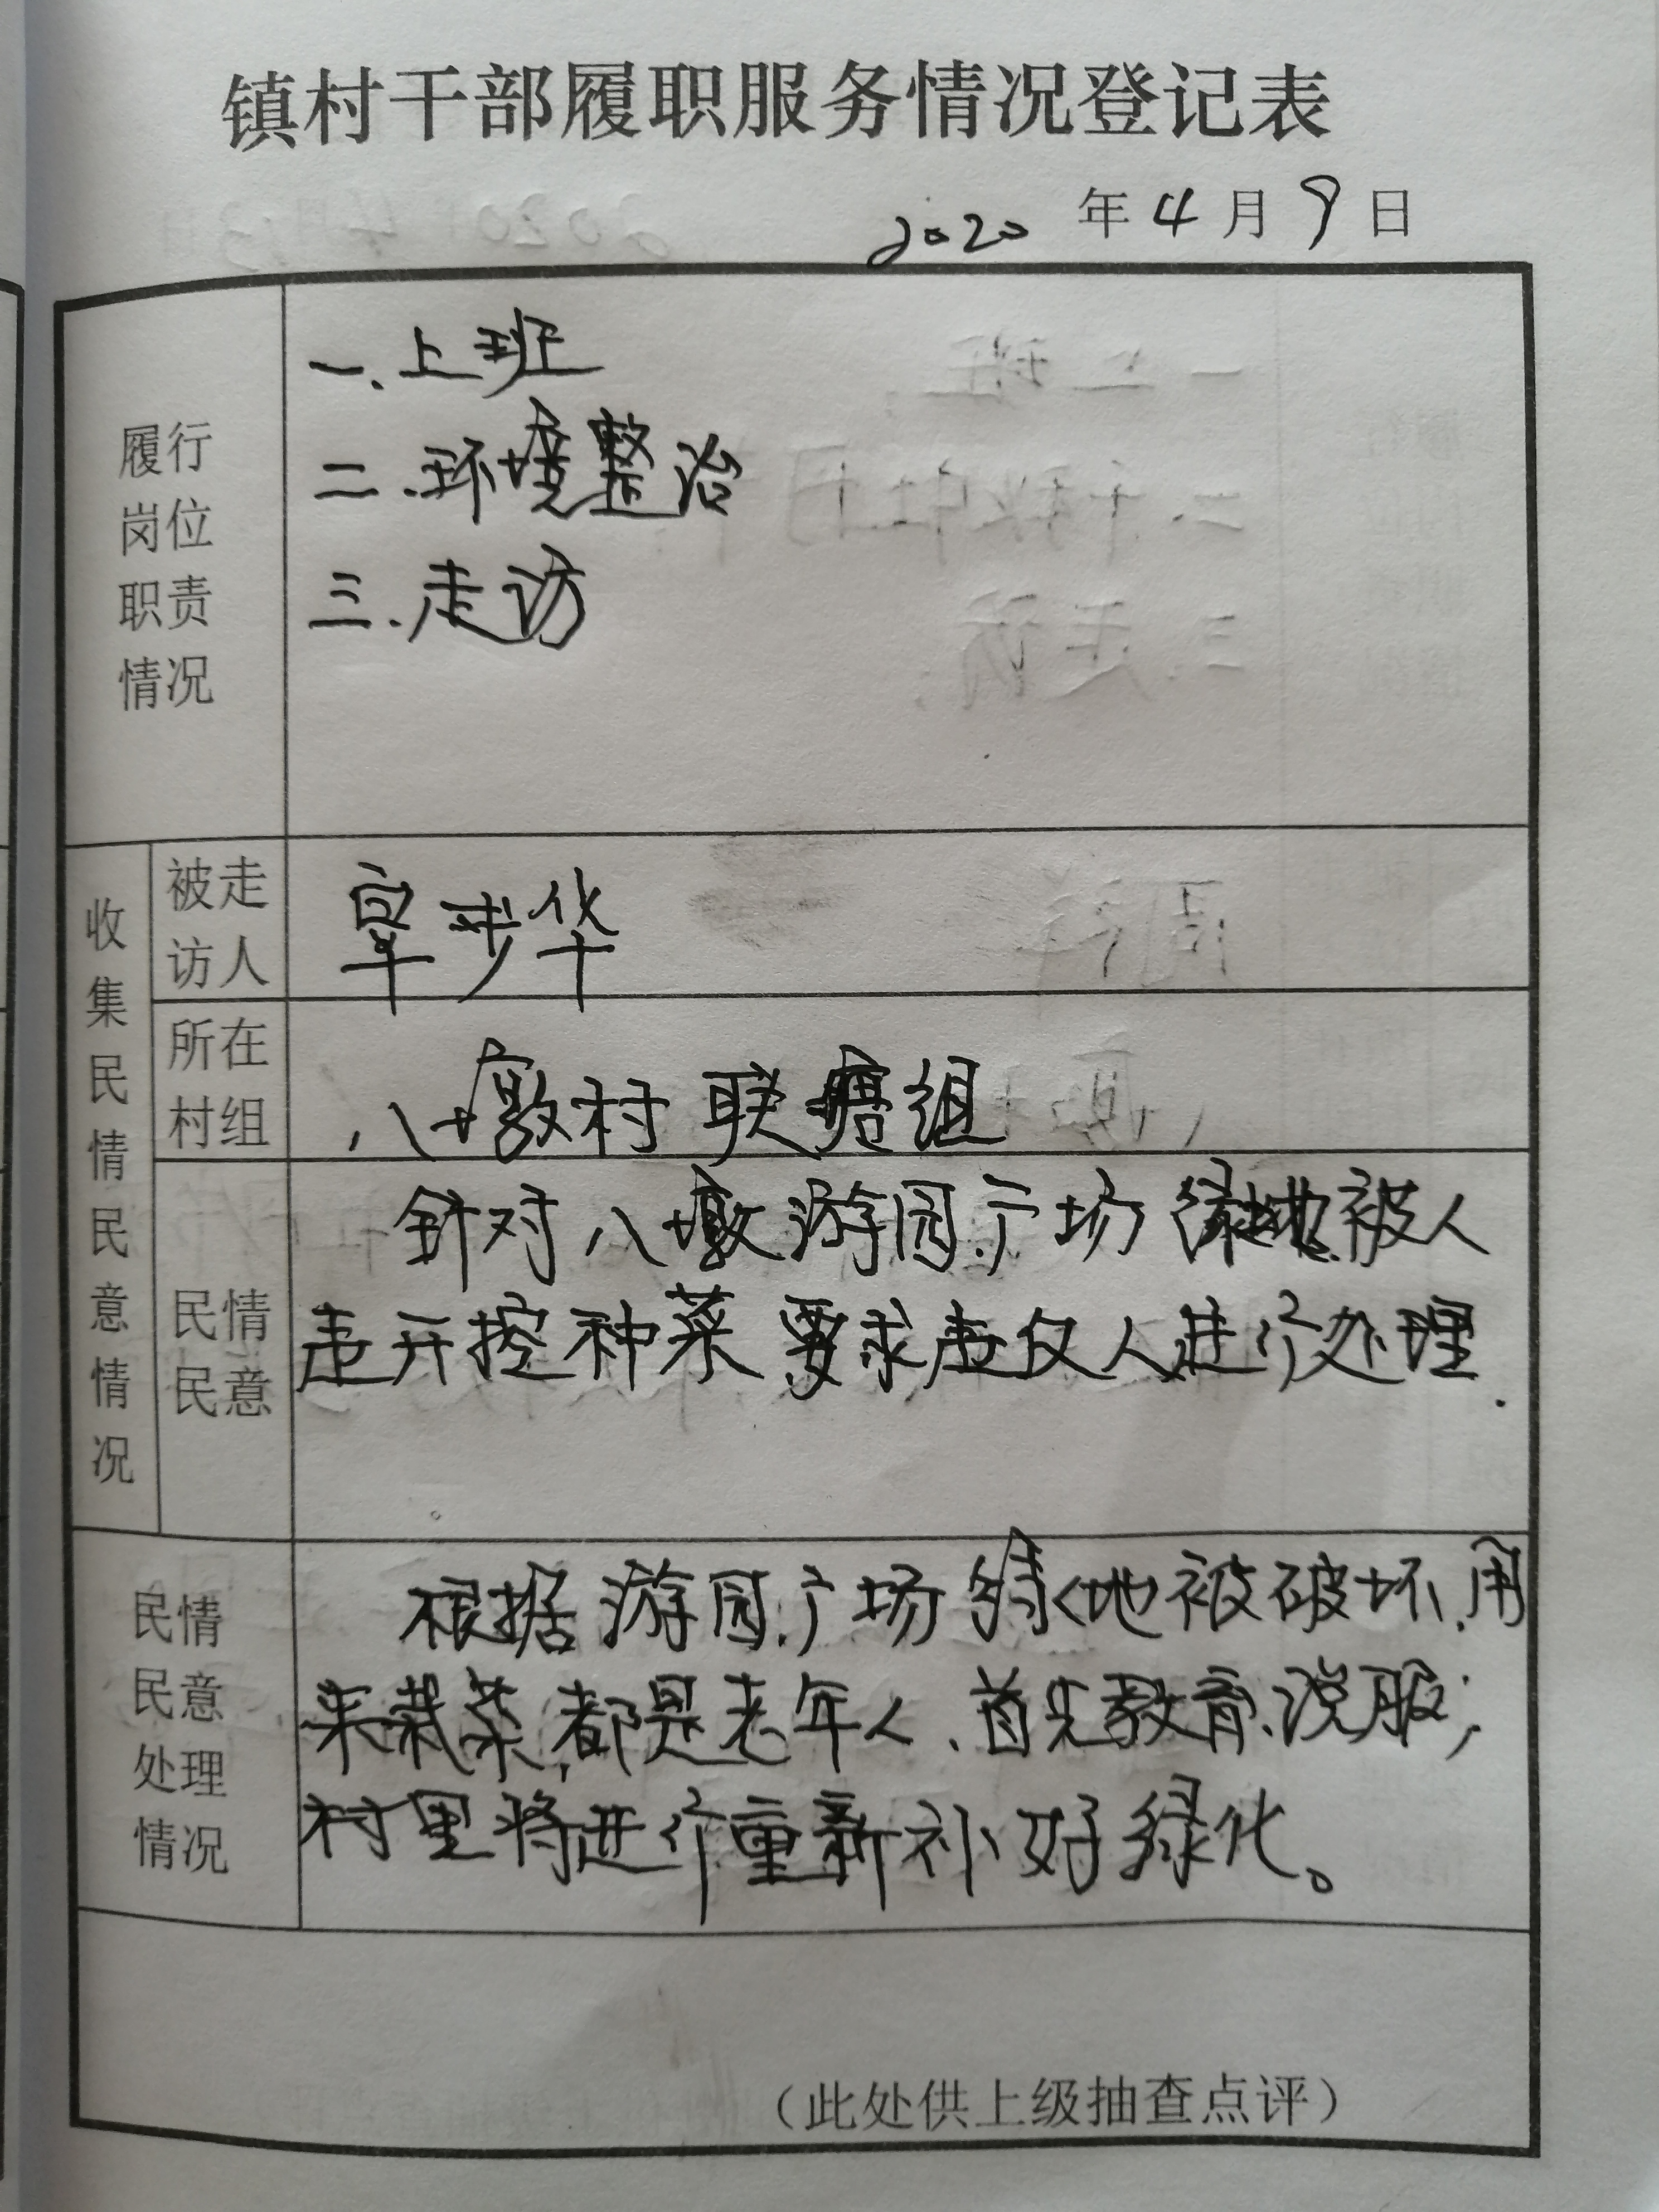 镇村干部履职服务情况登记表
2020年4月9日
履行
岗位
职责
情况
一.上班
二.环境整治
三.走访
收集民情民意情况
被走
访人
步华
所在
村组
八墩村 联塘组
民情
民意
针对八墩游园广场绿地被人
违开挖种菜要求违仅人进行处理.
民情
民意
处理
情况
根据游园广场绿地被破坏.用
来栽菜,都是老年人、首先教育、说服;
村里将进行重新补好绿化。
（此处供上级抽查点评）